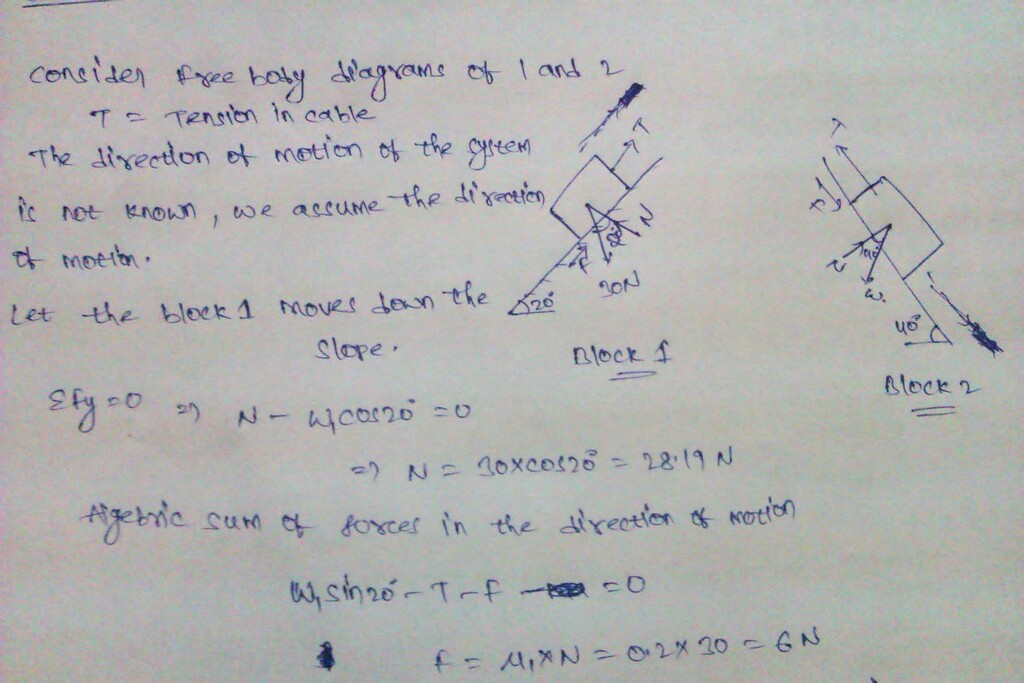 consider free body diagrams of 1 and 2
T = Tension in cable
The direction of motion of the system
is not known, we assume the direction
of motion.
Let the block 1 moves down the
slope.
T
N
20°
f
30N
20°
Block 1
T
40°
W2
40°
Block 2
Σfy=0 ⇒ N - W1cos20° = 0
⇒ N = 30xcos20° = 28.19 N
Algebric sum of forces in the direction of motion
W1 sin20° - T - f = 0
f = μ1xN = 0.2x30 = 6N